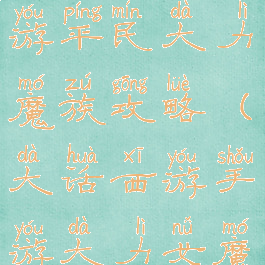 yóu píng mín dà lì
游平民大力
mó zú gōng lüè
魔族攻略（
dà huà xī yóu shǒu
大话西游手
yóu dà lì nǚ mó
游大力女魔